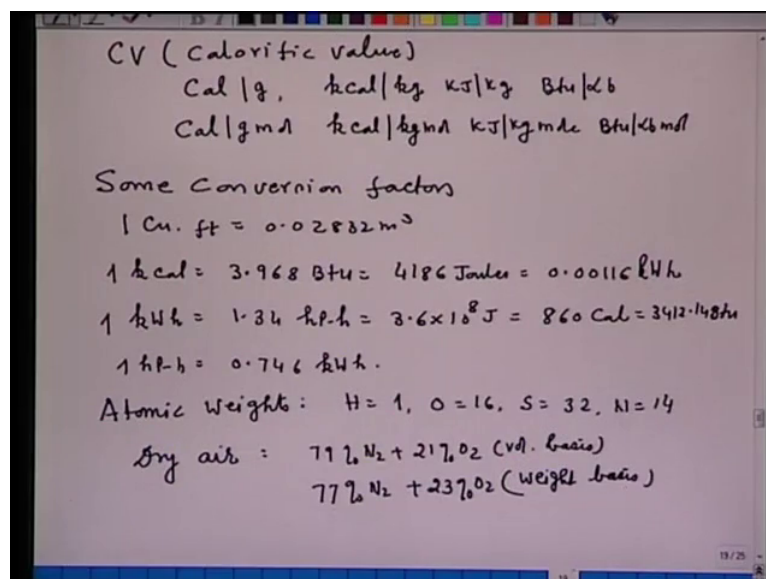 CV (Calorific value)
Cal/g, kcal/kg KJ/kg Btu/lb
Cal/gmol kcal/kgmol KJ/kgmole Btu/lbmol
Some Conversion factors
1 Cu. ft = 0.02832 m³
1 kcal = 3.968 Btu = 4186 Joules = 0.00116 kWh
1 kWh = 1.34 hp-h = 3.6×10⁸ J = 860 Cal = 3412.14Btu
1 hp-h = 0.746 kWh.
Atomic Weights: H = 1, O = 16, S = 32, N = 14
Dry air : 79% N₂ + 21% O₂ (vol. basis)
77% N₂ + 23% O₂ (weight basis)
19/25